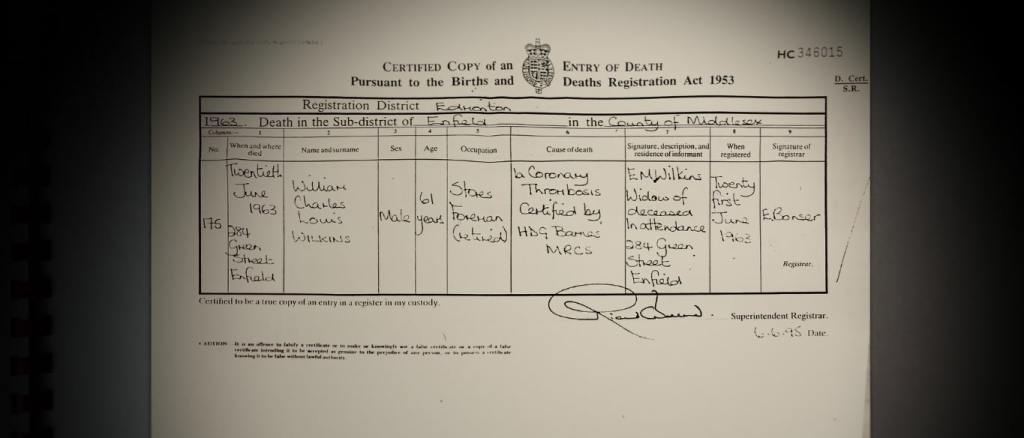 HC 346015
CERTIFIED COPY of an ENTRY OF DEATH
Pursuant to the Births and Deaths Registration Act 1953
D. Cert.
S.R.
Registration District Edmonton
1963 Death in the Sub-district of Enfield in the County of Middlesex
Columns:- 1 2 3 4 5 6 7 8 9
No. When and where died Name and surname Sex Age Occupation Cause of death Signature, description, and residence of informant When registered Signature of registrar
175
Twentieth
June
1963
284
Green
Street
Enfield
William
Charles
Louis
WILKINS
Male
61
years
Stores
Foreman
(retired)
1a Coronary
Thrombosis
Certified by
HDG Barnes
MRCS
E M Wilkins
Widow of
deceased
In attendance
284 Green
Street
Enfield
Twenty
first
June
1963
E. Bonser
Registrar.
Certified to be a true copy of an entry in a register in my custody.
Superintendent Registrar.
6.6.95 Date.
CAUTION It is an offence to falsify a certificate or to make or knowingly use a false certificate or a copy of a false
certificate intending it to be accepted as genuine to the prejudice of any person, or to possess a certificate
knowing it to be false without lawful authority.